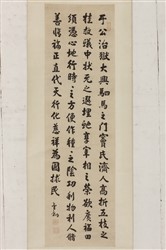 于公治獄大興駟馬之門竇氏濟人高折五枝之
桂救蟻中狀元之選埋蛇享宰相之榮欲廣福田
須憑心地行時〻之方便作種〻之陰功利物利人脩
善脩福正直代天行化慈祥為國救民